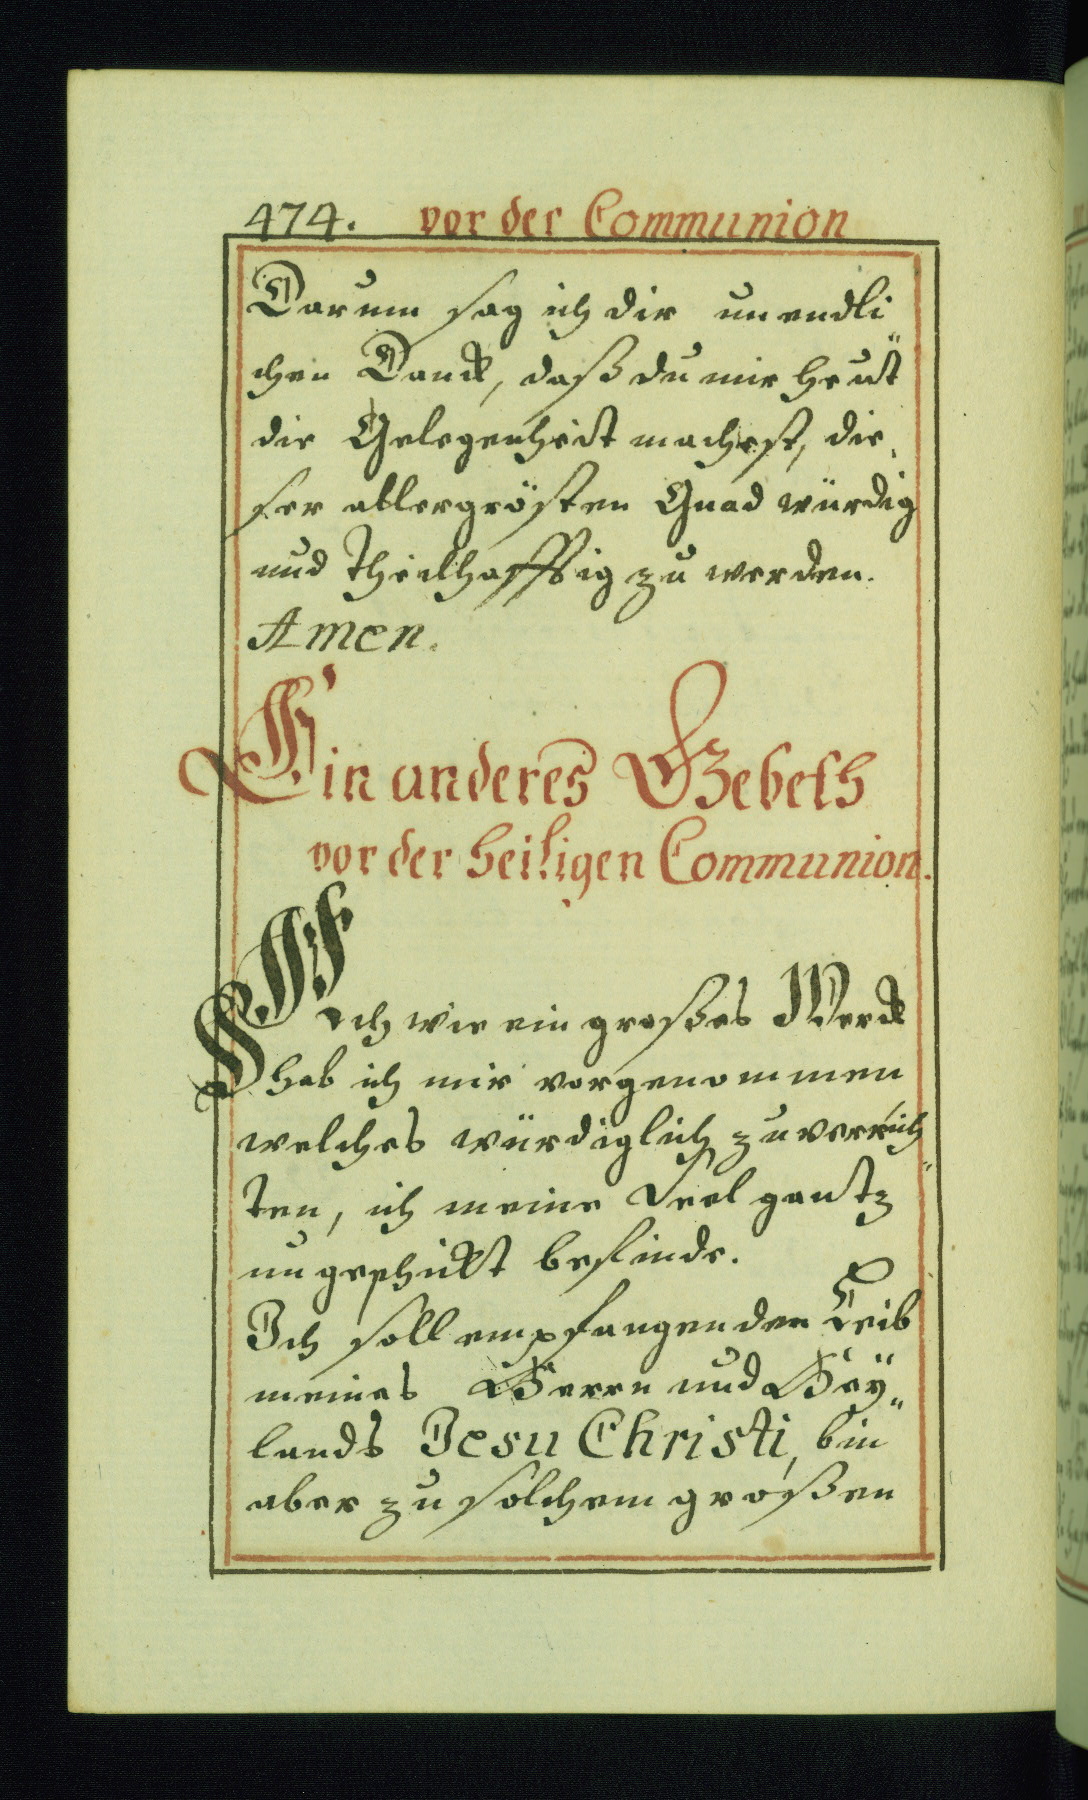 474. vor der Communion
Darum sag ich dir unendli„
chen Danck, daß du mir heüt
die Gelegenheit machest, die„
ser allergrösten Gnad würdig
und theilhafftig zu werden.
Amen.
Ein anderes Gebeth
vor der heiligen Communion.
Ach wie ein großes Werck
hab ich mir vorgenommen
welches würdiglich zu verrich„
ten, ich meine Seel gantz
ungeschikt befinde.
Ich soll empfangen den Leib
meines Herrn und Heÿ„
lands Jesu Christi, bin
aber zu solchem großen